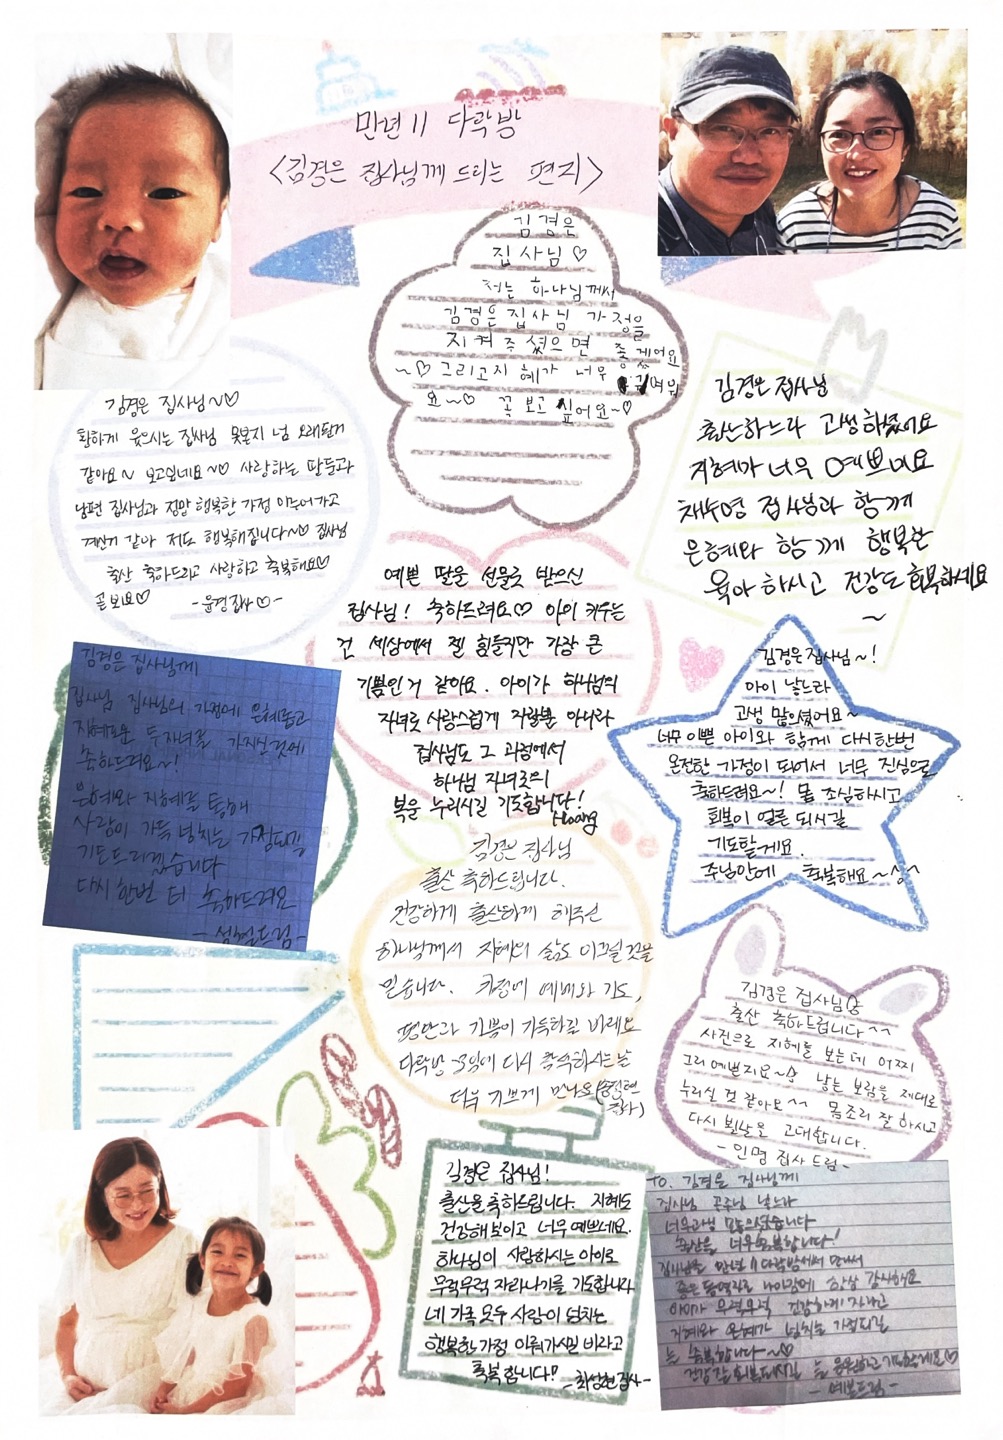 만년 11 다락방
<김경은 집사님께 드리는 편지>
김경은
집사님♡
저는 하나님께서
김경은 집사님 가정을
지켜주셨으면 좋겠어요
~♡ 그리고 지혜가 너무 귀여워
요~♡ 꼭 보고 싶어요~♡
김경은 집사님~♡
환하게 웃으시는 집사님 못본지 넘 오래된거
같아요~ 보고싶네요~♡ 사랑하는 딸둘과
남편 집사님과 정말 행복한 가정 이루어가고
계신거 같아 저도 행복해집니다~♡ 집사님
출산 축하드리고 사랑하고 축복해요♡
곧 보요♡ -윤경집사♡-
김경은 집사님
출산하느라 고생하셨어요
지혜가 너무 예쁘네요
채수영 집사님과 함께
은혜와 함께 행복한
육아하시고 건강도 회복하세요
~
예쁜 딸을 선물로 받으신
집사님! 축하드려요♡ 아이 키우는
건 세상에서 젤 힘들지만 가장 큰
기쁨인거 같아요. 아이가 하나님의
자녀로 사랑스럽게 자랄뿐 아니라
집사님도 그 과정에서
하나님 자녀로의
복을 누리시길 기도합니다!
Hoang
김경은 집사님께
집사님 집사님의 가정에 은혜롭고
지혜로운 두자녀를 가지신것에
축하드려요~!
은혜와 지혜를 통해
사랑이 가득 넘치는 가정되길
기도드리겠습니다
다시 한번 더 축하드려요
-성현드림-
김경은집사님~!
아이 낳느라
고생 많으셨어요~
너무 이쁜 아이와 함께 다시한번
온전한 가정이 되어서 너무 진심으로
축하드려요~! 몸 조심하시고
회복이 얼른 되시길
기도할게요.
주님안에 축복해요~^^
김경은 집사님
출산 축하드립니다.
건강하게 출산하게 해주신
하나님께서 지혜의 삶도 이끄실것을
믿습니다. 가정에 예배와 기도,
평안과 기쁨이 가득하길 바래요
다락방 모임에 다시 참석하시는 날
더욱 기쁘게 만나요
집사)
김경은 집사님
출산 축하드립니다~~
사진으로 지혜를 보는데 어찌
그리 예쁜지요~ 낳는 보람을 제대로
누리실 것 같아요~~ 몸조리 잘 하시고
다시 뵐날을 고대합니다.
-인명 집사 드림-
김경은 집사님!
출산을 축하드립니다. 지혜도
건강해보이고 너무 예쁘네요.
하나님이 사랑하시는 아이로
무럭무럭 자라나기를 기도합니다
네 가족 모두 사랑이 넘치는
행복한 가정 이뤄가시길 바라고
축복합니다!
-최성현집사-
To. 김경은 집사님께
집사님 공주님 낳느라
너무고생 많으셨습니다
출산을 너무 축복합니다!
집사님을 만년 11 다락방에서 만나서
좋은 동역자로 나아감에 항상 감사해요
아이가 무럭무럭 건강하게 자라고
지혜와 은혜가 넘치는 가정되길
축복합니다~♡
건강 회복되시길
드림-